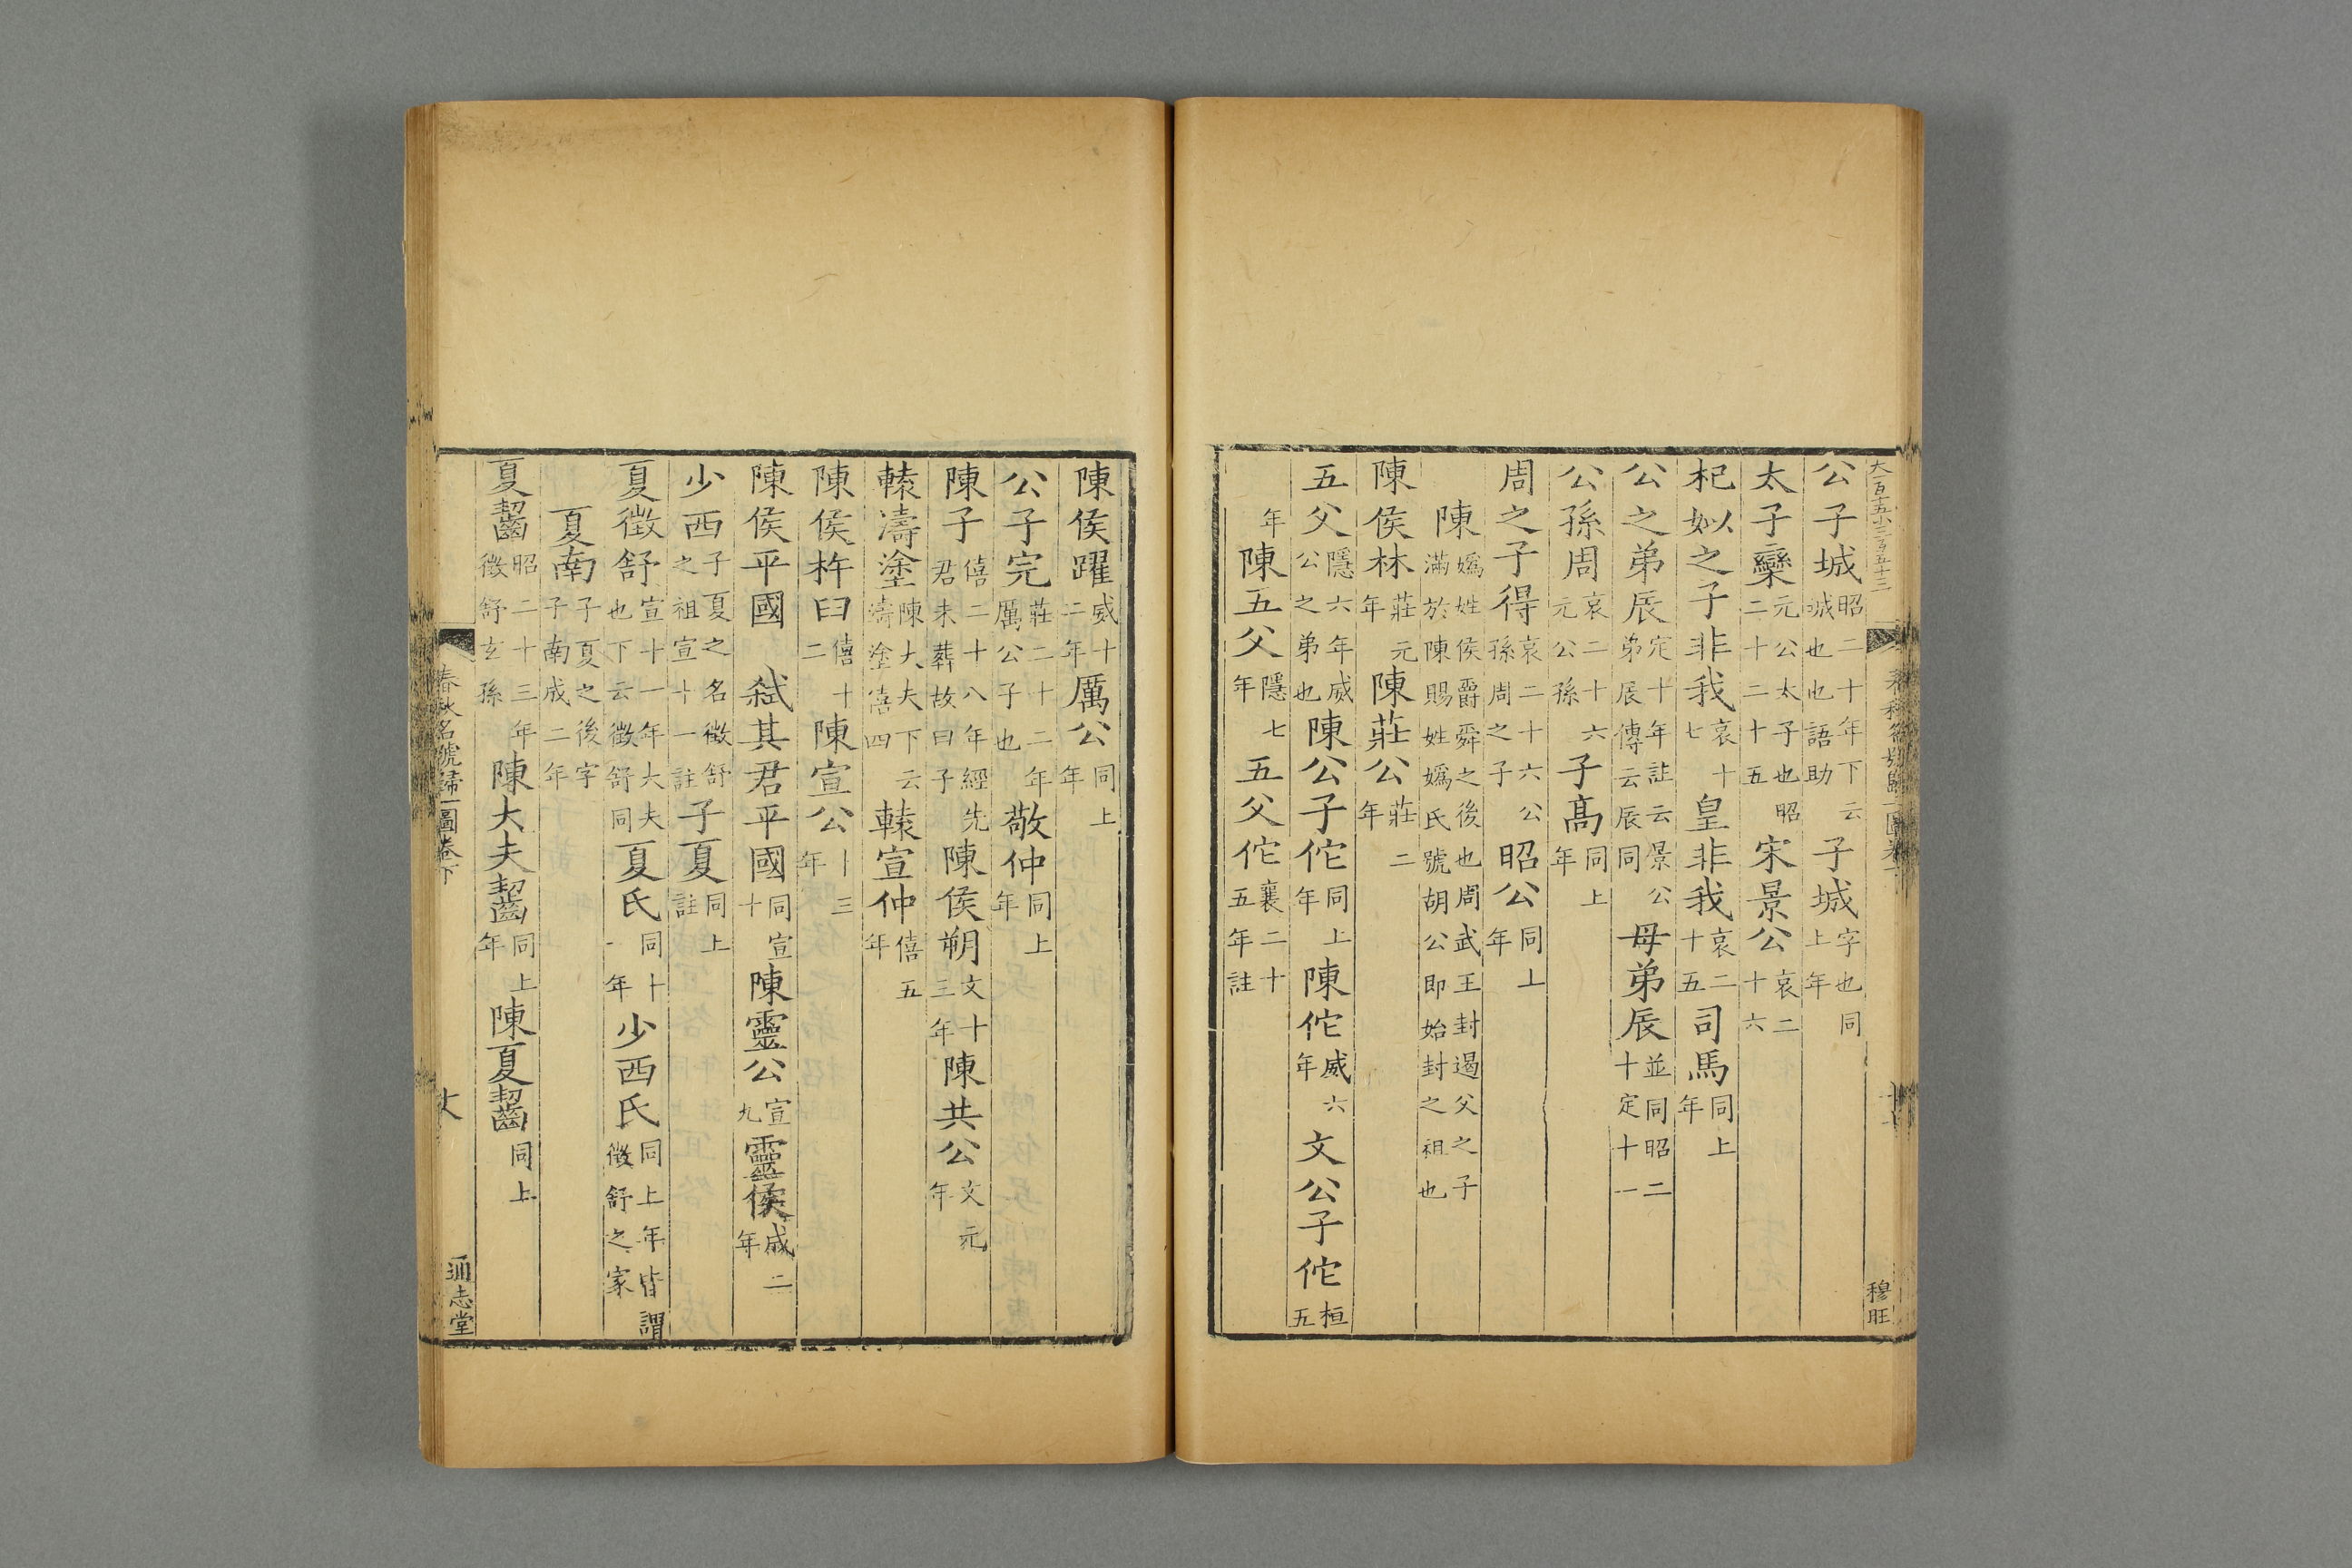 大一百十五小三百五十三
公子城昭二十年下云城也也語助子城字也同上年
太子欒元公太子也昭二十二十五宋景公哀二十六
杞姒之子非我哀十七皇非我哀二十五司馬同上年
公之弟辰定十年註云景公弟辰傳云辰同母弟辰並同昭二十定十一
公孫周哀二十六元公孫子高同上年
周之子得哀二十六公孫周之子昭公同上年
陳媯姓侯爵舜之後也周武王封遏父之子滿於陳賜姓媯氏號胡公即始封之祖也
陳侯林莊元年陳莊公莊二年
五父隱六年威公之弟也陳公子佗同上年陳佗威六年文公子佗桓五
年陳五父隱七年五父佗襄二十五年註
穆旺
陳侯躍威十二年厲公同上年
公子完莊二十二年厲公子也敬仲同上年
陳子僖二十八年經先君未葬故曰子陳侯朔文十三年陳共公文元年
轅濤塗陳大夫下云濤塗僖四轅宣仲僖五年
陳侯杵臼僖十二陳宣公十三年
陳侯平國弒其君平國同宣十陳靈公宣九靈侯成二年
少西子夏之名徵舒之祖宣十一註子夏同上註
夏徵舒宣十一年大夫也下云徵舒同夏氏同十一年少西氏同上年皆謂徵舒之家
夏南子夏之後字子南成二年
夏齧昭二十三年徵舒玄孫陳大夫齧同上年陳夏齧同上
春秋名號歸一圖卷下
通志堂